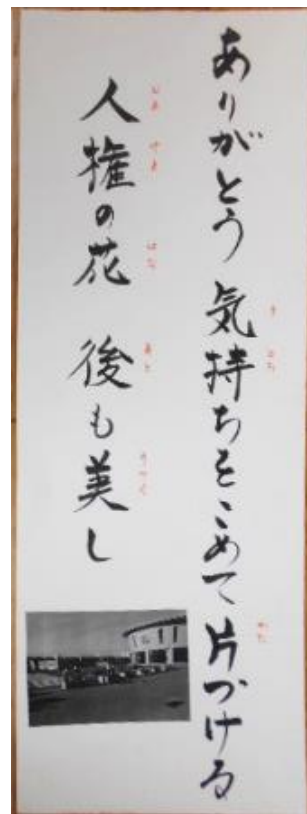 ありがとう 気持ちをこめて 片づける
人権の花 後も美し